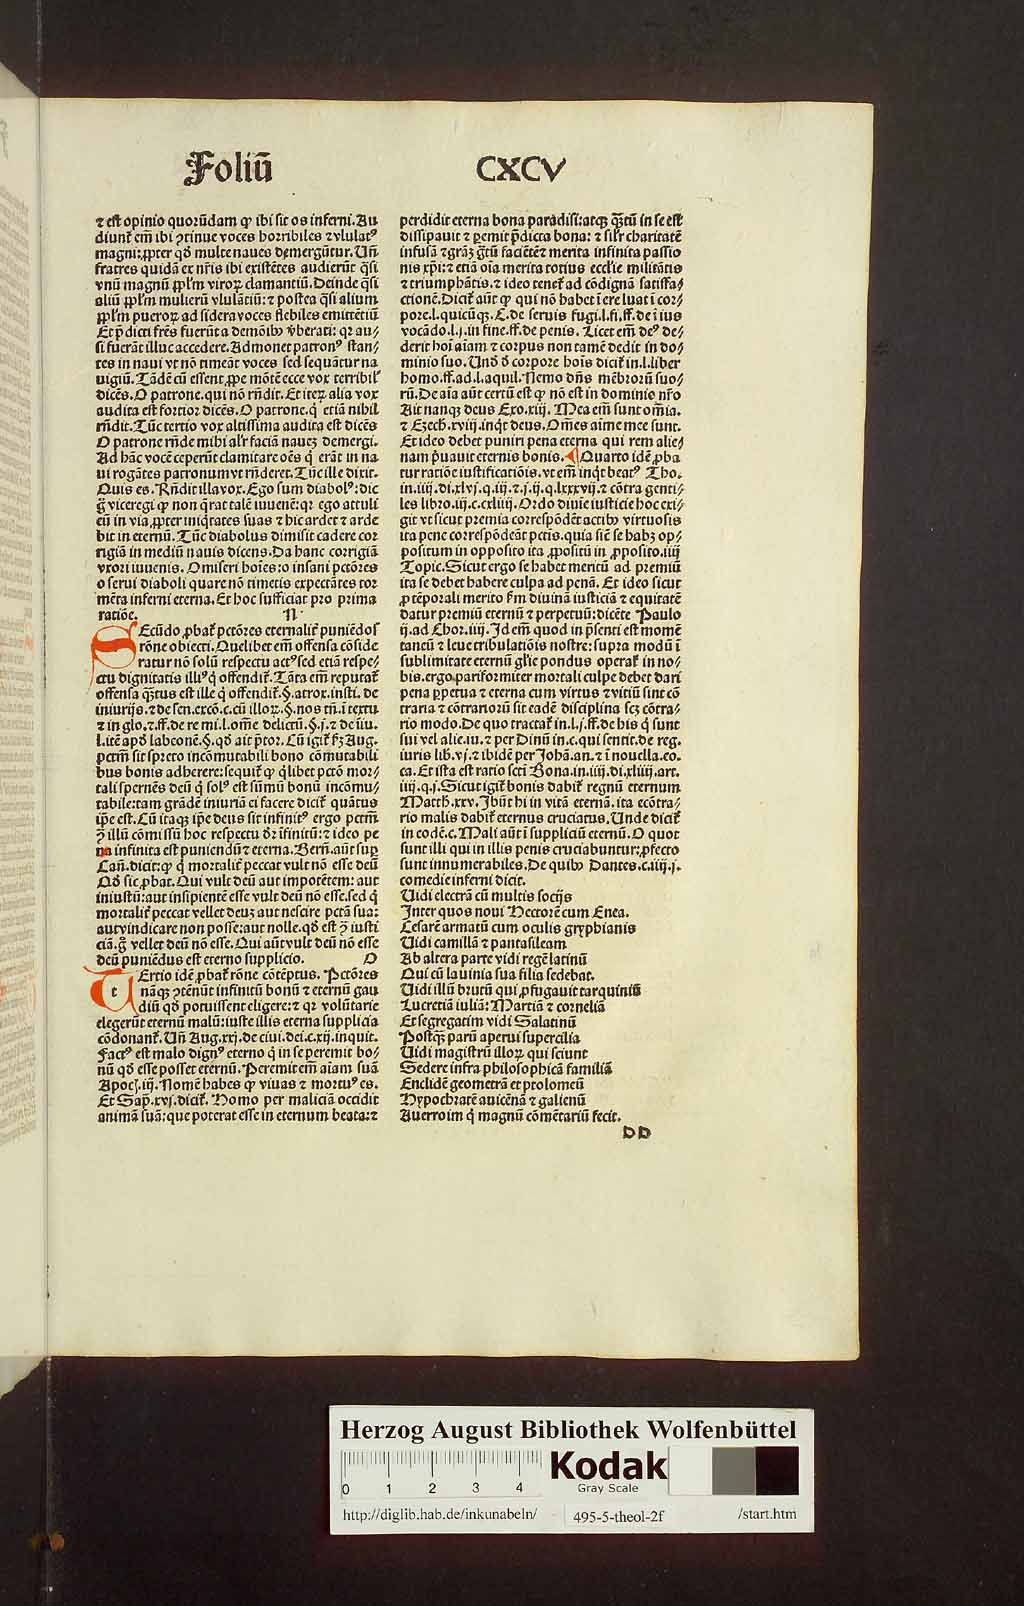 Foliū CXCV
⁊ est opinio quorūdam ꝙ ibi sit os inferni. Au
diunt᷑ em̄ ibi ꝯtinue voces horribiles ⁊ vlulatꝰ
magni: ꝓpter qđ multe naues demergūtur. Un̄
fratres quidā ex nr̄is ibi existētes audierūt q̄si
vnū magnū ꝓpl̄m viroꝝ clamantiū. Deinde q̄si
aliū ꝓpl̄m mulierū vlulātiū: ⁊ postea q̄si alium
ꝓpl̄m pueroꝝ ad sidera voces flebiles emittētiū
Et p̄dicti fr̄es fuerūt a demōibꝰ v̄berati: qꝛ au⸗
si fuerāt illuc accedere. Admonet patronꝰ stan⸗
tes in naui vt nō timeāt voces sed sequātur na
uigiū. Tādē cū essent ꝓpe mōtē ecce vox terribil᷑
dicēs. O patrone. qui nō rn̄dit. Et iteꝝ alia vox
audita est fortior dicēs. O patrone. q̇ etiā nihil
rn̄dit. Tūc tertio vox altissima audita est dicēs
O patrone rn̄de mihi al̓r faciā nauez demergi.
Ad hāc vocē ceperūt clamitare oēs q̇ erāt in na
ui rogātes patronum vt rn̄deret. Tūc ille dixit.
Quis es. Rn̄dit illa vox. Ego sum diabolꝰ: dic
g̃ viceregi ꝙ non q̄rat talē iuuenē: qꝛ ego attuli
eū in via ꝓpter iniq̇tates suas ⁊ hic ardet ⁊ arde
bit in eternū. Tūc diabolus dimisit cadere cor
rigiā in mediū nauis dicens. Da hanc corrigiā
vxori iuuenis. O miseri hoīes: o insani pctōres
o serui diaboli quare nō timetis expectātes tor
mēta inferni eterna. Et hoc sufficiat pro prima
ratiōe. N
SEcūdo ꝓbat᷑ pctōres eternalit᷑ puniēdos
rōne obiecti. Quelibet em̄ offensa cōside
ratur nō solū respectu actꝰ sed etiā respe⸗
ctu dignitatis illiꝰ q̇ offendit᷑. Tāta em̄ reputat᷑
offensa q̄ꝫtus est ille q̇ offendit᷑. §. atrox. insti. de
iniurijs. ⁊ de sen. exco. c. cū illoꝝ. §. nos tn̄. ī textu
⁊ in glo. ⁊. ff. de re mi. l. om̄e delictū. §. j. ⁊ de iiu.
l. itē apđ labeonē. §. qđ ait p̄tor. Cū igit᷑ fꝫ Aug.
pctm̄ sit spreto incōmutabili bono cōmutabili
bus bonis adherere: sequit᷑ ꝙ q̇libet pctō mor⸗
tali spernēs deū q̇ solꝰ est sūmū bonū incōmu⸗
tabile: tam grādē iniuriā ei facere dicit᷑ quātus
ip̄e est. Cū itaqꝫ ip̄e deus sit infinitꝰ ergo pctm̄
ꝯ̄ illū cōmissū hoc respectu dr̄ īfinitū: ⁊ ideo pe
na infinita est puniendū ⁊ eterna. Bern̄. aūt suꝑ
Can̄. dicit: ꝙ q̇ mortalit᷑ peccat vult nō esse deū
Qđ sic ꝓbat. Qui vult deū aut impotētem: aut
iniustū: aut insipientē esse vult deū nō esse. sed q̇
mortalit᷑ peccat vellet deuꝫ aut nescire pctā sua:
aut vindicare non posse: aut nolle. qđ est ꝯ̄ iusti
ciā. g̃ vellet deū nō esse. Qui aūt vult deū nō esse
deū puniēdus est eterno supplicio. O
TErtio idē ꝓbat᷑ rōne cōtēptus. Pctōres
nāqꝫ ꝯtēnūt infinitū bonū ⁊ eternū gau
diū qđ potuissent eligere: ⁊ qꝛ volūtarie
elegerūt eternū malū: iuste illis eterna supplicia
cōdonant᷑. Un̄ Aug. xxj. de ciui. dei. c. xij. inquit.
Factꝰ est malo dignꝰ eterno q̇ in se peremit bo⸗
nū qđ esse posset eternū. Peremit em̄ aiam suā
Apocꝭ. iij. Nomē habes ꝙ viuas ⁊ mortuꝰ es.
Et Sap̄. xvj. dicit᷑. Homo per maliciā occidit
animā suā: que poterat esse in eternum beata: ⁊
perdidit eterna bona paradisi: atqꝫ q̄ꝫtū in se est
dissipauit ⁊ ꝑemit p̄dicta bona: ⁊ sil̓r charitatē
infusā ⁊ grāꝫ g̈tū faciētē ⁊ merita infinita passio
nis xp̄i: ⁊ etiā oīa merita totius eccl̄ie militātis
⁊ triumphātis. ⁊ ideo tenet᷑ ad cōdignā satisfa⸗
ctionē. Dicit᷑ aūt ꝙ qui nō habet ī ere luat ī cor⸗
pore. l. quicūqꝫ. C. de seruis fugi. l. fi. ff. de ī ius
vocādo. l. j. in fine. ff. de penis. Licet em̄ deꝰ de⸗
derit hoī aīam ⁊ corpus non tamē dedit in do⸗
minio suo. Unđ đ corpore hoīs dicit᷑ in. l. liber
homo. ff. ad. l. aquil. Nemo dn̄s mēbrorū suo⸗
rū. De aīa aūt certū est ꝙ nō est in dominio nr̄o
Ait nanqꝫ deus Exo. xiij. Mea em̄ sunt om̄ia.
⁊ Ezech. xviij. inq̇t deus. Om̄es aīme mee sunt.
Et ideo debet puniri pena eterna qui rem alie⸗
nam p̄uauit eternis bonis. ¶ Quarto idē ꝓba
tur ratiōe iustificatiōis. vt em̄ inq̇t beatꝰ Tho.
in. iiij. di. xlvj. q. iij. ⁊. j. ij. q. lxxxvij. ⁊ cōtra genti⸗
les libro. iij. c. cxliiij. Ordo diuīe iusticie hoc exi⸗
git vt sicut premia correspōdēt actibꝰ virtuosis
ita pene correspōdeāt pctīs. quia sic̄ se habꝫ op⸗
positum in opposito ita ꝓpositū in ꝓposito. iiij
Topic. Sicut ergo se habet meritū ad premiū
ita se debet habere culpa ad penā. Et ideo sicut
ꝓ tēporali merito fm̄ diuinā iusticiā ⁊ equitatē
datur premiū eternū ⁊ perpetuū: dicēte Paulo
ij. ad Chor. iiij. Id em̄ quod in p̄senti est momē
taneū ⁊ leue tribulatiōis nostre: supra modū ī
sublimitate eternū gl̄ie pondus operat᷑ in no⸗
bis. ergo pariformiter mortali culpe debet dari
pena ꝑpetua ⁊ eterna cum virtus ⁊ vitiū sint cō
traria ⁊ cōtrariorū sit eadē disciplina scꝫ cōtra⸗
rio modo. De quo tractat᷑ in. l. j. ff. de his q̇ sunt
sui vel alie. iu. ⁊ per Dinū in. c. qui sentit. de reg.
iuris lib. vj. ⁊ ibidē per Johā. an. ⁊ ī nouella. eo.
ca. Et ista est ratio scti Bona. in. iiij. di. xliiij. art.
iij. q. j. Sicut igit᷑ bonis dabit᷑ regnū eternum
Matth. xxv. Ibūt hi in vitā eternā. ita ecōtra⸗
rio malis dabit᷑ eternus cruciatus. Unde dicit᷑
in eodē. c. Mali aūt ī suppliciū eternū. O quot
sunt illi qui in illis penis cruciabuntur: ꝓfecto
sunt innumerabiles. De quibꝰ Dantes. c. iiij. j.
comedie inferni dicit.
Uidi electrā cū multis socijs
Inter quos noui Hectorē cum Enea.
Cesarē armatū cum oculis gryphianis
Uidi camillā ⁊ pantasileam
Ab altera parte vidi regē latinū
Qui cū lauinia sua filia sedebat.
Uidi illū brutū qui ꝓfugauit tarquiniū
Lucretiā iuliā: Martiā ⁊ corneliā
Et segregatim vidi Salatinū
Postqꝫ parū aperui supercilia
Uidi magistrū illoꝝ qui sciunt
Sedere infra philosophicā familiā
Enclidē geometrā et ptolomeū
Hypochratē auicēnā ⁊ galienū
Auerroim q̇ magnū cōmētariū fecit.
DD
Herzog August Bibliothek Wolfenbüttel
0 1 2 3 4
Kodak
Gray Scale
http://diglib.hab.de/inkunabeln/ 495-5-theol-2f /start.htm